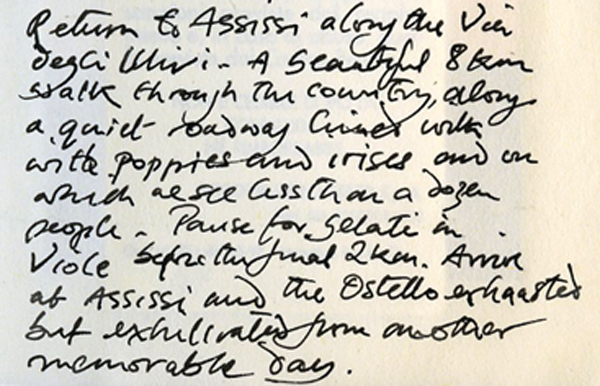 Return to Assissi along the Via
degli Ulivi - A beautiful 8km
walk through the country, along
a quiet roadway lined with
with poppies and irises and on
which we see less than a dozen
people. Pause for gelati in
Viole before the final 2km. Arrive
at Assissi and the Ostello exhausted
but exhilirated from another
memorable day.